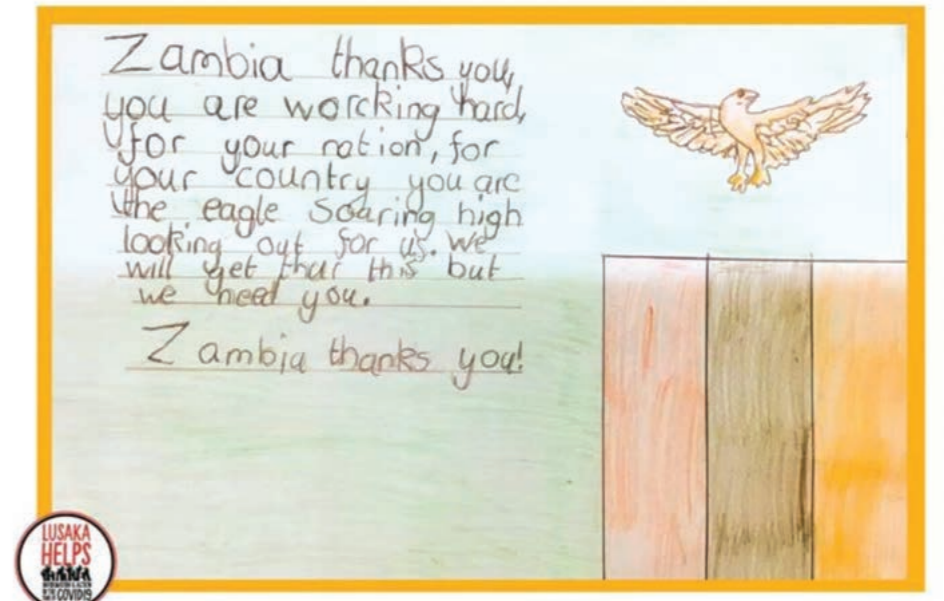 Zambia thanks you,
you are worcking hard,
for your nation, for
your country you are
the eagle soaring high
looking out for us. We
will get thur this but
we need you.
Zambia thanks you!
LUSAKA
HELPS
COVID19